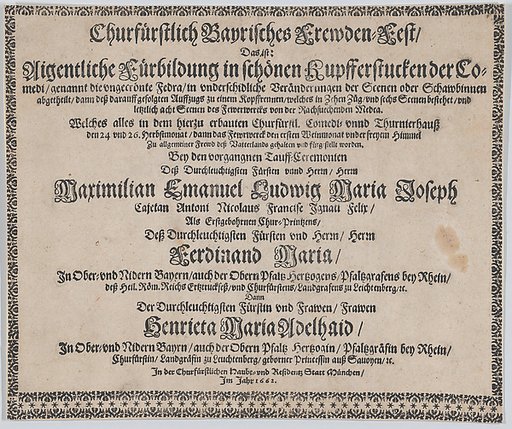 Churfürstlich Bayrisches Frewden-Fest/
Das ist:
Aigentliche Fürbildung in schönen Kupfferstucken der Co-
medi/ genannt die ungecrönte Fedra/ in underschidliche Veränderungen der Scenen oder Schawbinnen
abgetheilt/ dann deß darauff gefolgten Auffzugs zu einem Kopffrennen/ welches in Zehen Züg/ und sechs Scenen bestehet/ und
letzlich acht Scenen des Fewerwercks von der Rachsuechenden Medea.
Welches alles in dem hierzu erbauten Churfürstl. Comedi- unnd Thurnierhauß
den 24 und 26. Herbstmonat/ dann das Fewrwerck den ersten Weinmonat under freyem Himmel
Zu allgemeiner Frewd deß Vatterlands gehalten und fürgestellt worden,
Bey den vorgangnen Tauff-Ceremonien
Deß Durchleuchtigsten Fürsten unnd Herrn/ Herrn
Maximilian Emanuel Ludwig Maria Joseph
Cajetan Antoni Nicolaus Francisc Ignati Felix/
Als Erstgebohrnen Chur-Printzens/
Deß Durchleuchtigsten Fürsten und Herrn/ Herrn
Ferdinand Maria/
In Ober- und Nidern Bayern/ auch der Obern Pfaltz Hertzogens/ Pfaltzgrafens bey Rhein/
deß Heil. Röm. Reichs Ertztruckseß/ und Churfürstens/ Landgrafens zu Leichtenberg/ ꝛc.
Dann
Der Durchleuchtigsten Fürstin und Frawen/ Frawen
Henrieta Maria Adelhaid/
In Ober- und Nidern Bayrn/ auch der Obern Pfaltz Hertzogin/ Pfaltzgräfin bey Rhein/
Churfürstin/ Landgräfin zu Leuchtenberg/ geborner Princessin auß Savoyen/ ꝛc.
In der Churfürstlichen Haubt- und Residentz Statt München/
Im Jahr 1662.